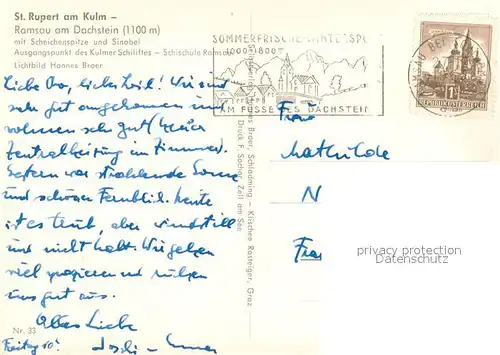 St. Rupert am Kulm –
Ramsau am Dachstein (1100 m)
mit Scheichenspitze und Sinabel
Ausgangspunkt des Kulmer Schiliftes – Schischule Ramsau
Lichtbild Hannes Braer
SOMMERFRISCHE-WINTERSP
1000-1800
AM FUSSE DES DACHSTEIN
REPUBLIK ÖSTERREICH
Liebe Ora, lieber! Wir sind
sehr gut angekommen und
wohnen sehr gut
Zentralheizung im Zimmer).
Gestern war strahlende Sonne
und schöner Fernblick. heute
ist es trüb, aber windstill
und nicht kalt. Wir gehen
viel spazieren und ruhen
uns gut aus.
Alles Liebe
Freitag
Nr. 33
Braer, Schladming – Klischee Rasteiger, Graz
Druck F. Sochor, Zell am See
Frau
Mathilde
N
Frau
privacy protection
Datenschutz